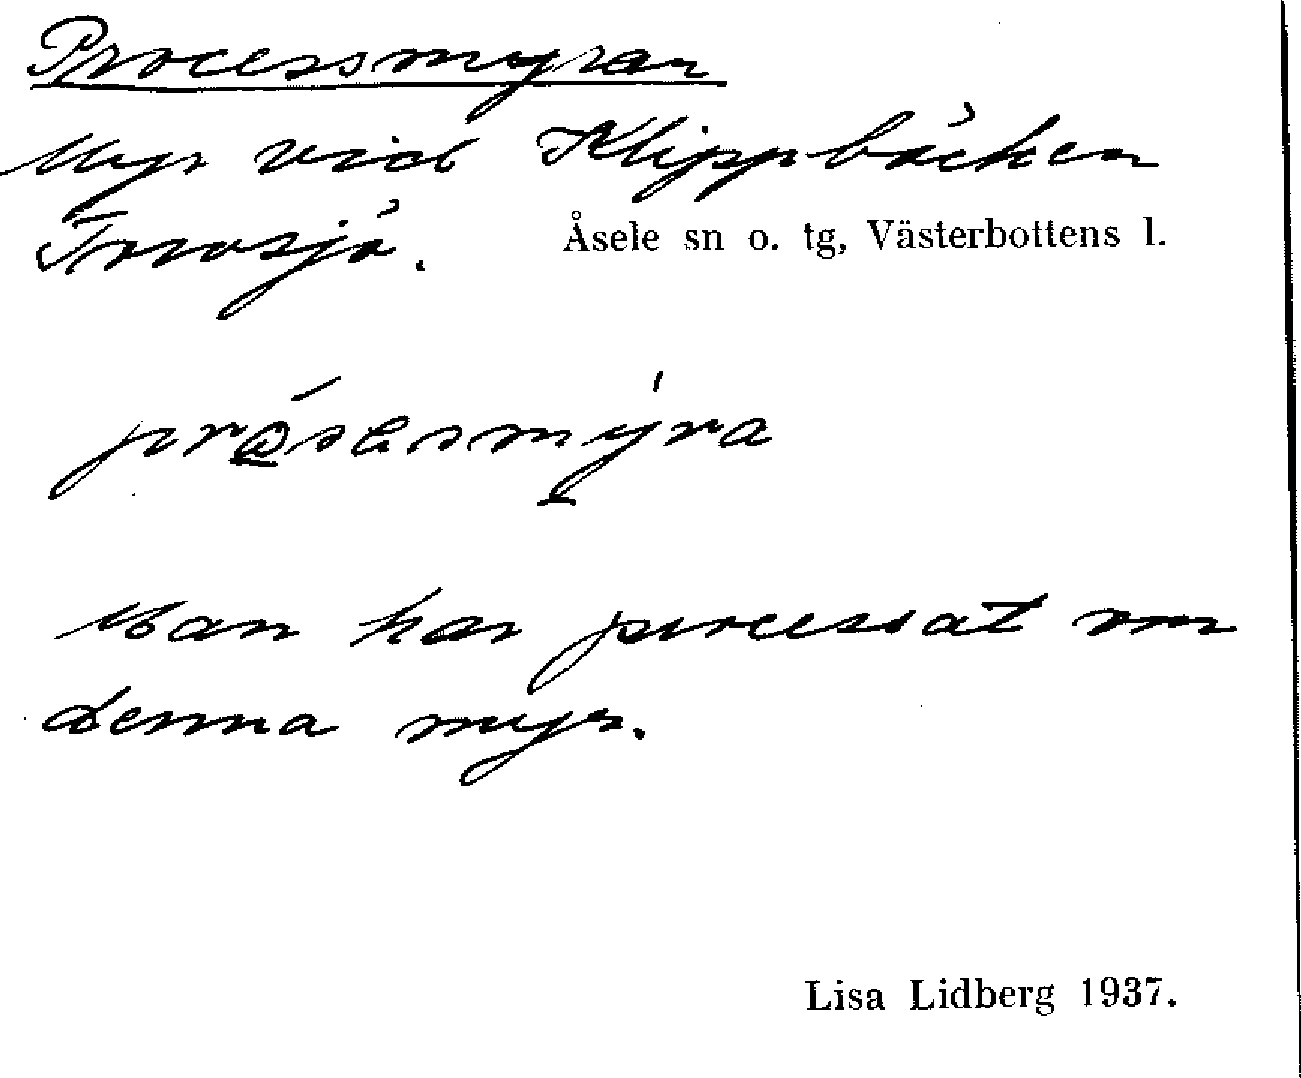 Processmyran
Myr vid Klippbäcken
Torvsjö. Åsele sn o. tg, Västerbottens l.
prósesmýra
Man har processat om
denna myr.
Lisa Lidberg 1937.